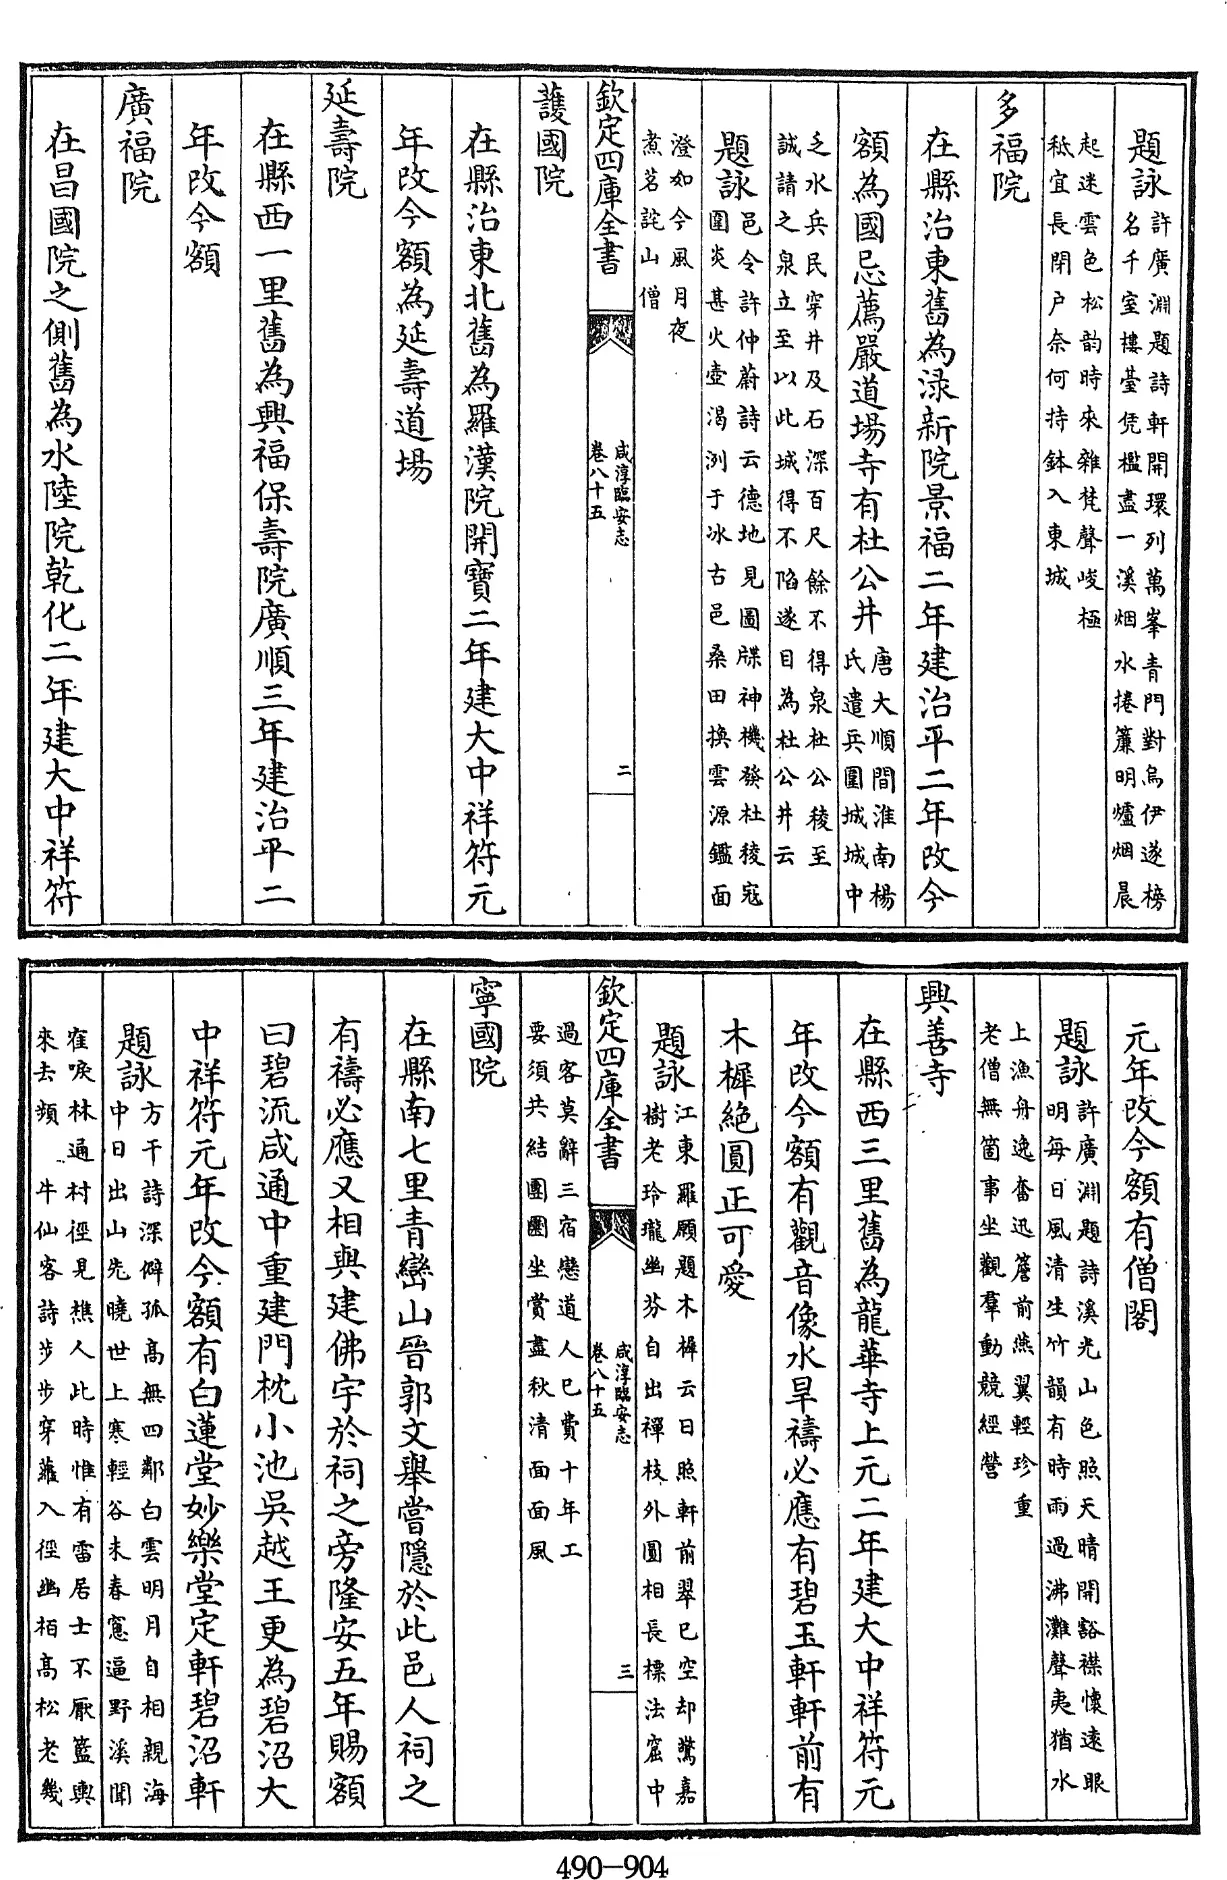 題詠許廣淵題詩軒開環列萬峯青門對烏伊遂榜
名千室樓臺凭檻盡一溪烟水捲簾明爐烟晨
起迷雲色松韵時來雜梵聲峻極
秪宜長閉户奈何持鉢入東城
多福院
在縣治東舊為渌新院景福二年建治平二年改今
額為國忌薦嚴道場寺有杜公井唐大順間淮南楊
氏遣兵圍城城中
乏水兵民穿井及石深百尺餘不得泉杜公稜至
誠請之泉立至以此城得不陷遂目為杜公井云
題詠邑令許仲蔚詩云德地見圖牒神機發杜稜寇
圍炎甚火壺渴洌于冰古邑桑田換雲源鑑面
澄如今風月夜
煮茗詫山僧
欽定四庫全書
咸淳臨安志
卷八十五
二
護國院
在縣治東北舊為羅漢院開寶二年建大中祥符元
年改今額為延壽道場
延壽院
在縣西一里舊為興福保壽院廣順三年建治平二
年改今額
廣福院
在昌國院之側舊為水陸院乾化二年建大中祥符
元年改今額有僧閣
題詠許廣淵題詩溪光山色照天晴開豁襟懷遠眼
明每日風清生竹韻有時雨過沸灘聲夷猶水
上漁舟逸奮迅簷前燕翼輕珍重
老僧無箇事坐觀羣動競經營
興善寺
在縣西三里舊為龍華寺上元二年建大中祥符元
年改今額有觀音像水旱禱必應有碧玉軒軒前有
木樨絶圓正可愛
題詠江東羅願題木樨云日照軒前翠已空却驚嘉
樹老玲瓏幽芬自出禪枝外圓相長標法窟中
過客莫辭三宿戀道人已費十年工
要須共結團圞坐賞盡秋清面面風
欽定四庫全書
咸淳臨安志
卷八十五
三
寧國院
在縣南七里青巒山晉郭文舉嘗隱於此邑人祠之
有禱必應又相與建佛宇於祠之旁隆安五年賜額
曰碧流咸通中重建門枕小池吳越王更為碧沼大
中祥符元年改今額有白蓮堂妙樂堂定軒碧沼軒
題詠方干詩深僻孤高無四鄰白雲明月自相親海
中日出山先曉世上寒輕谷未春窻逼野溪聞
寉唳林通村徑見樵人此時惟有雷居士不厭籃輿
來去頻　牛仙客詩步步穿蘿入徑幽栢高松老幾
490-904